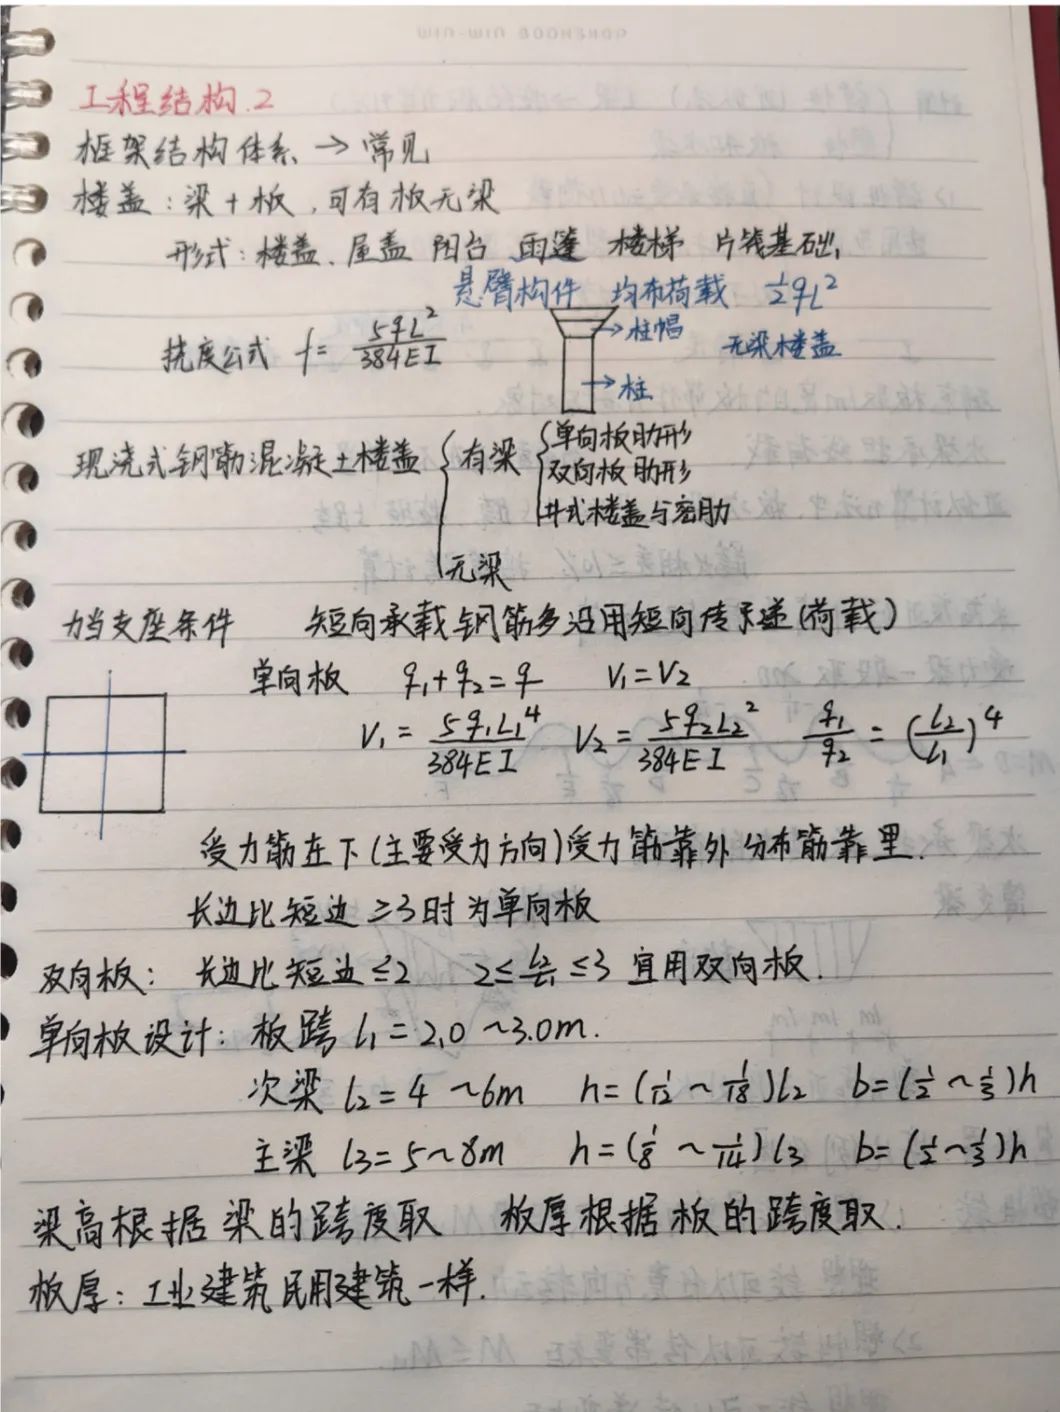 工程结构.2
框架结构体系 → 常见
楼盖:梁+板,可有板无梁
形式:楼盖、屋盖 阳台 雨篷 楼梯 片筏基础,
悬臂构件 均布荷载 ½qL²
挠度公式 f= 5qL²/384EI
→柱帽 无梁楼盖
→柱
现浇式钢筋混凝土楼盖 { 有梁 { 单向板肋形
双向板肋形
井式楼盖与密肋
无梁
力当支座条件 短向承载 钢筋多沿用短向传递(荷载)
单向板 q₁+q₂=q V₁=V₂
V₁= 5q₁L₁⁴/384EI V₂= 5q₂L₂²/384EI q₁/q₂ = (L₂/L₁)⁴
受力筋在下(主要受力方向)受力筋靠外 分布筋靠里.
长边比短边 ≥3时为单向板
双向板: 长边比短边≤2 2≤ L₂/L₁ ≤3 宜用双向板.
单向板设计: 板跨 l₁=2.0~3.0m.
次梁 l₂=4~6m h=(1/12~1/18)l₂ b=(1/2~1/3)h
主梁 l₃=5~8m h=(1/8~1/14)l₃ b=(1/2~1/3)h
梁高根据梁的跨度取 板厚根据板的跨度取.
板厚:工业建筑民用建筑一样.